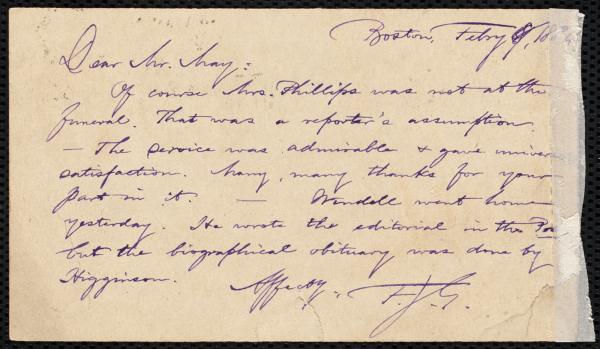 Boston, Febry 8, 188
Dear Mr. May:
Of course Mrs. Phillips was not at the
funeral. That was a reporter's assumption.
— The service was admirable & gave univers
satisfaction. Many, many thanks for your
part in it. — Wendell went home
yesterday. He wrote the editorial in the Pos
but the biographical obituary was done by
Higginson.
Affecty, F.J.G.